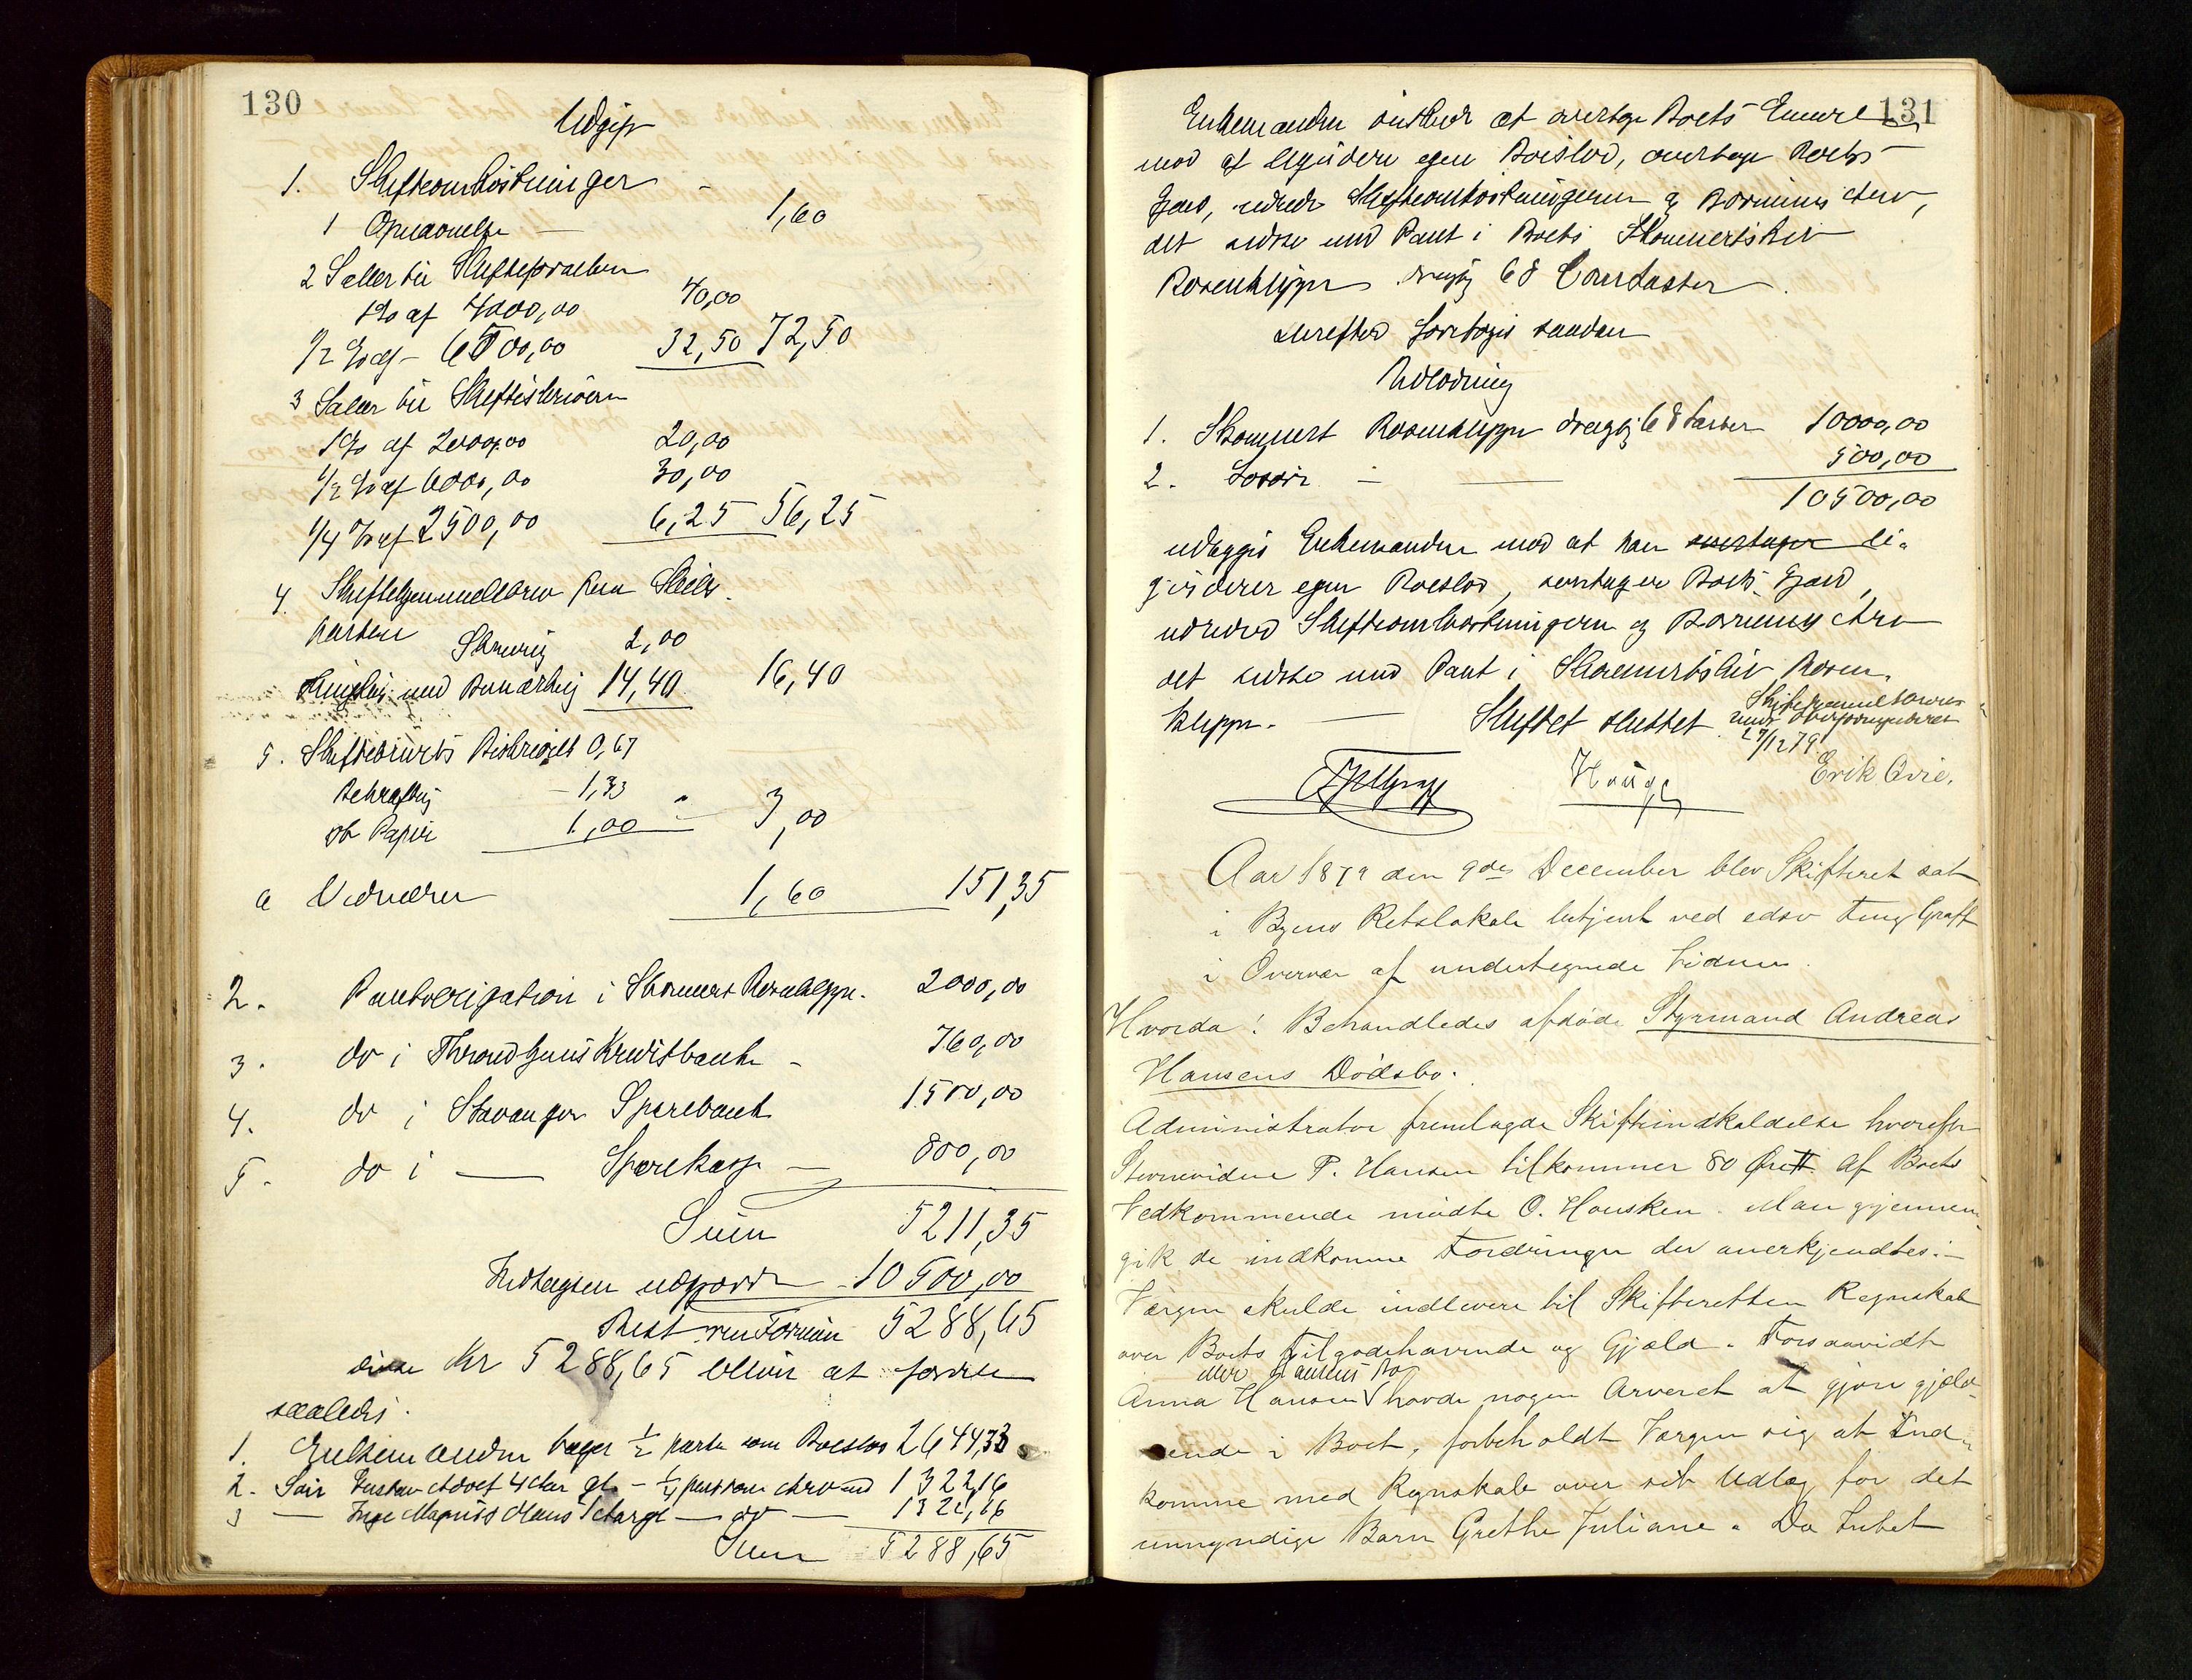 130
Udgift
1. Skifteomkostninger -
1 Opnævnelse — 1,60
2 Sallær til Skifteforvalteren
1% af 4000,00 40,00
1/2 % af - 6500,00 32,50 72,50
3 Sallær til Skifteskriveren
1% af 2000,00 20,00
1/2 % af 6000,00 30,00
1/4 % af 2500,00 6,25 56,25
4. Skiftebrevenes
Skrivning 2,00
Thinglysning med Bemærkning 14,40 16,40
5. Skiftebrevets Beskrivelse 0,67
Bekræftning - 1,33
st. Papir 1,00 3,00
6 Vidnerne 1,60 151,35
2. Pantobligation i Skonnert Rosenklippe. 2000,00
3. do i Throndhjems Kreditbank - 760,00
4. do i Stavanger Sparebank 1500,00
5. do i — Sparekasse — 800,00
Sum 5211,35
Indtægten udgjorde 10500,00
Rest ren Formue 5288,65
disse Kr 5288,65 bliver at fordele
saaledes.
1. Enkemanden tager 1/2 parten som Boeslod 2644,33
2. Søn Gustav Adolf 4 Aar gl. - 1/4 part som Arv med 1322,16
3 — Inge Magnus Hans 1 Aar gl — do — 1322,16
Sum 5288,65
131
Enkemanden ønsker at overtage Boets Eiendele
mod at liqvidere egen Boeslod, overtage Boets
Gjæld, udrede Skifteomkostningerne og Børnenes Arv,
det sidste med Pant i Boets Skonnertskib
Rosenklippe drægtig 68 Com Læster.
derefter foretoges saadan
Udlodning
1. Skonnert Rosenklippe drægtig 68 Læster 10000,00
2. Løsøre - — 500,00
10500,00
udlægges Enkemanden mod at han overtager li-
qviderer egen Boeslod, overtager Boets Gjæld,
udreder Skifteomkostningerne og Børnenes Arv
det sidste med Pant i Skonnertskib Rosen-
klippe. — Skiftet sluttet.
27/12 79
Hauge Erik Qvie.
Aar 1879 den 9de December blev Skifteret sat
i Byens Retslokale betjent ved edsv. Fuldm. Graff
i Overvær af undertegnede Vidner.
Hvorda! Behandledes afdøde Styrmand Andreas
Hansens Dødsbo.
Administrator fremlagde Skifteindkaldelse hvorefter
Stevnevidne P. Hansen tilkommer 80 Øre. Af Boets
Vedkommende mødte O. Housken. Man gjennem-
gik de indkomne Fordringer der anerkjendtes.-
Værgen skulde indlevere til Skifteretten Regnskab
over Boets Tilgodehavende og Gjæld. Forsaavidt
eller Hansens Bo
Anna Hansen havde nogen Arveret at gjøre gjæld-
ende i Boet, forbeholdt Værgen sig at ind-
komme med Regnskab over sit Udlæg for det
umyndige Barn Grethe Juliane. Da Intet